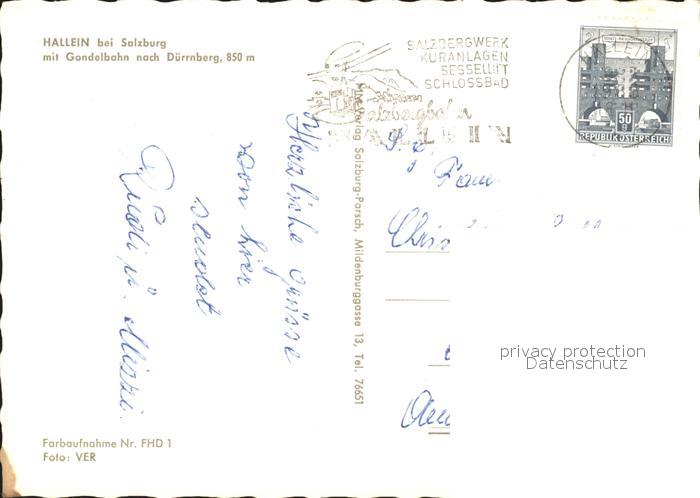 HALLEIN bei Salzburg
mit Gondelbahn nach Dürrnberg, 850 m
SALZBERGWERK
KURANLAGEN
SESSELLIFT
SCHLOSSBAD
HALLEIN
50
g
REPUBLIK ÖSTERREICH
Herzliche Grüsse
von hier
sendet
Rudi u.
Verlag Salzburg-Parsch, Mildenburggasse 13, Tel. 76651
Frau
Chris
privacy protection
Datenschutz
Farbaufnahme Nr. FHD 1
Foto: VER